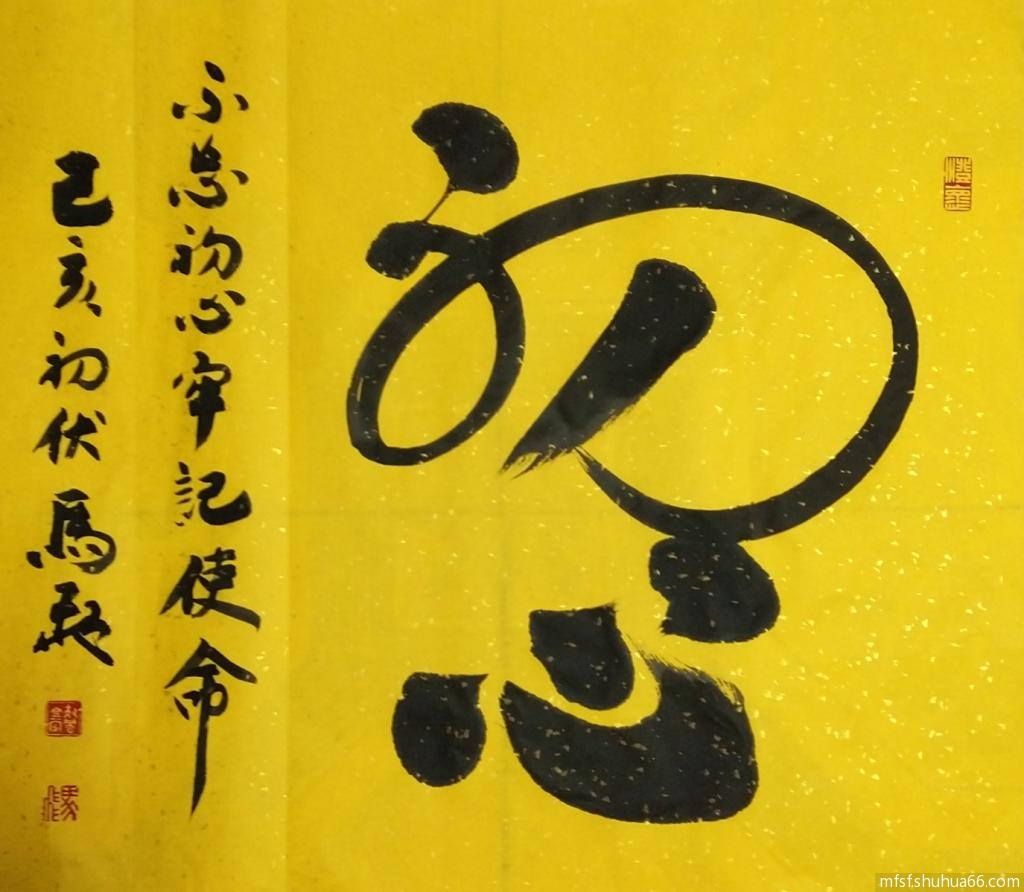 初心
不忘初心牢记使命
己亥初伏馬
mfsf.shuhua66.com